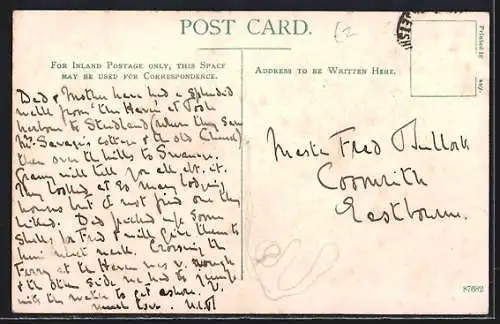 POST CARD.
£2
FOR INLAND POSTAGE ONLY, THIS SPACE
MAY BE USED FOR CORRESPONDENCE.
ADDRESS TO BE WRITTEN HERE.
Dad & Mother have had a splendid
walk from "the Haven" at Poole
harbour to Studland (where they saw
Mr. Savage's cottage & the old Church)
then over the hills to Swanage.
Granny will tell you all abt. it.
They looked at so many lodging
houses but did not find one they
liked. Dad picked up some
shells for Fred & will give them to
him next week. Crossing the
Ferry at the Haven was v. rough
& the other side we had to jump
into the water to get ashore.
much love.
Master Fred
Eastbourne.
Printed in
87682